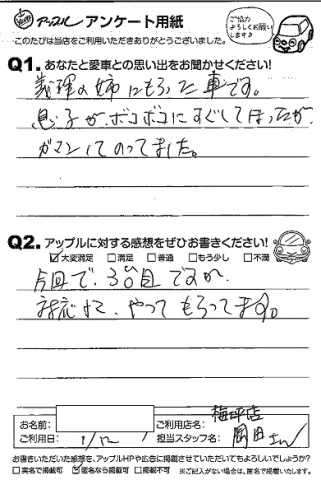 アップル アンケート用紙
このたびは当店をご利用いただきありがとうございました。
ご協力
よろしくお願い
します♪
Q1. あなたと愛車との思い出をお聞かせください!
義理の姉にもらった車です。
息子が、ボコボコにすぐしてしまったが
ガマンしてのってました。
Q2. アップルに対する感想をぜひお書きください!
☑大変満足 □満足 □普通 □もう少し □不満
今回で、3回目ですが、
やってもらってます。
お名前:
ご利用店名: 梅坪店
ご利用日: 1/12
担当スタッフ名: 岡田さん
お書きいただいた感想を、アップルHPや広告に掲載させていただいてもよろしいでしょうか?
□実名で掲載可 ☑匿名なら掲載可 □掲載不可 ※ご記入がない場合は、匿名で掲載いたします。